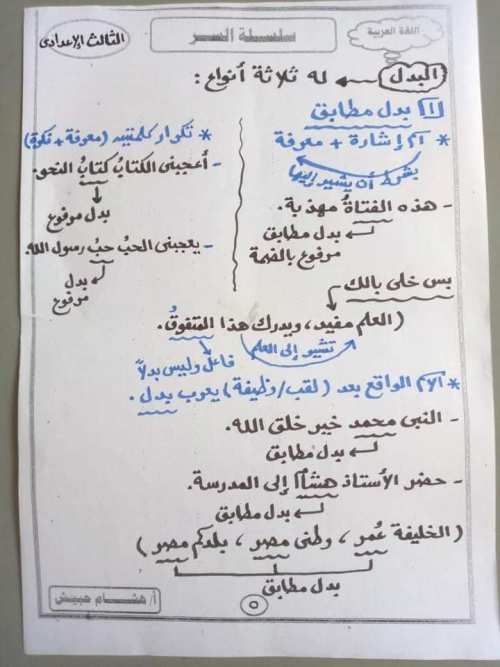 اللغة العربية
سلسلة السر
الثالث الإعدادى
البدل ← له ثلاثة أنواع :
١ بدل مطابق
* اسم إشارة + معرفة
بشرط أن يشير إليها
- هذه الفتاةُ مهذبة.
بدل مطابق
مرفوع بالضمة
* تكرار كلمتين (معرفة + نكرة)
- أعجبنى الكتابُ كتابُ النحو.
بدل مرفوع
- يعجبنى الحبُ حبُ رسول الله.
بدل
مرفوع
بس خلى بالك
(العلم مفيد، ويدرك هذا المتفوقُ.
تشير إلى العلم
فاعل وليس بدلاً
* الاسم الواقع بعد (لقب/وظيفة) يعرب بدل.
- النبى محمد خير خلق الله.
بدل مطابق
- حضر الأستاذ هشامٌ إلى المدرسة.
بدل مطابق
(الخليفة عُمر، وطنى مصر، بلدكم مصر)
بدل مطابق
أ/ هشام حبيش
٥